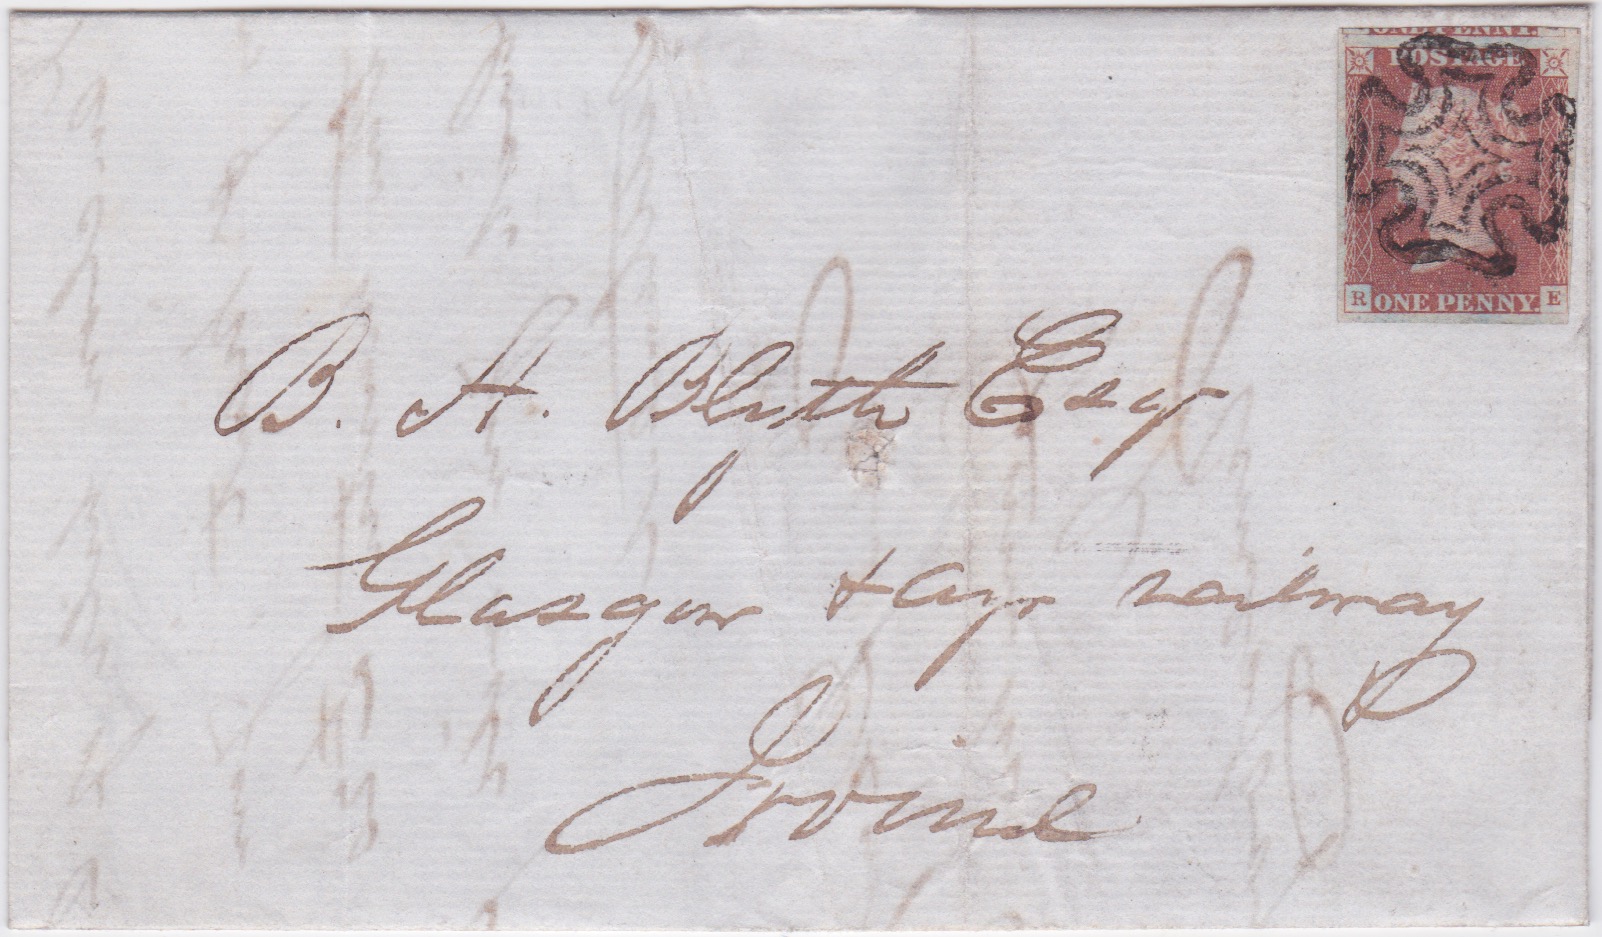 ONE PENNY.
POSTAGE
R ONE PENNY. E
B. H. Blyth Esqr
Glasgow & Ayr railway
Irvine